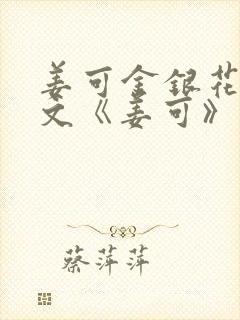 姜可金银花
文《姜可》
蔡萍萍